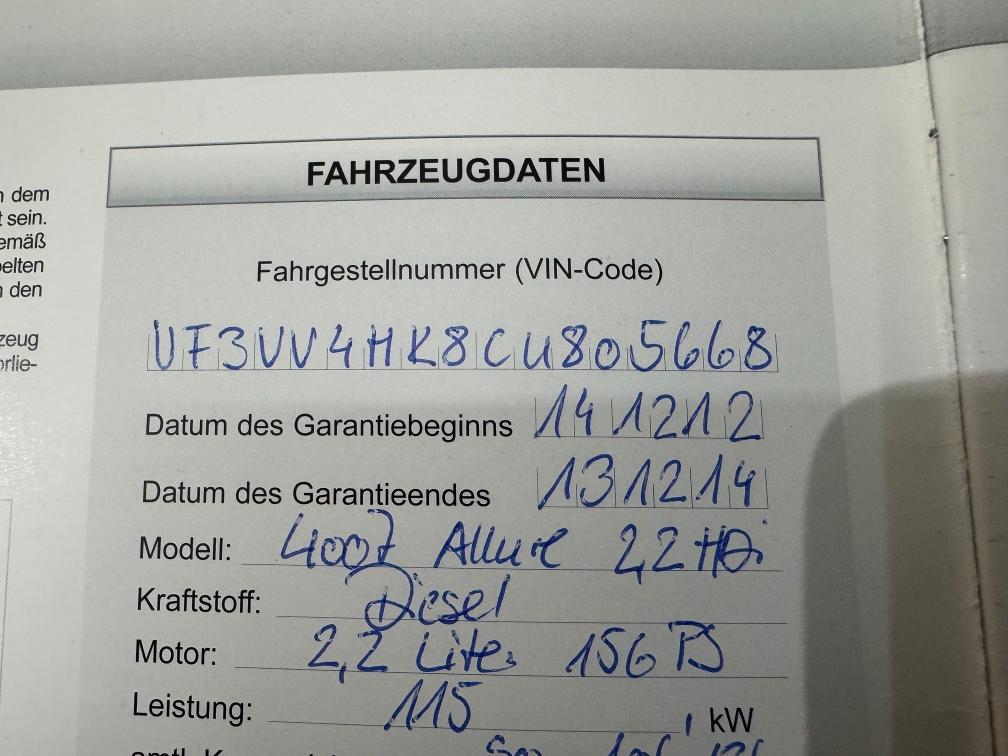 n dem
t sein.
emäß
pelten
n den
zeug
orlie-
FAHRZEUGDATEN
Fahrgestellnummer (VIN-Code)
VF3VV4HK8CU805668
Datum des Garantiebeginns 141212
Datum des Garantieendes 131214
Modell: 4007 Allure 2,2 HDi
Kraftstoff: Diesel
Motor: 2,2 Liter 156 PS
Leistung: 115 kW